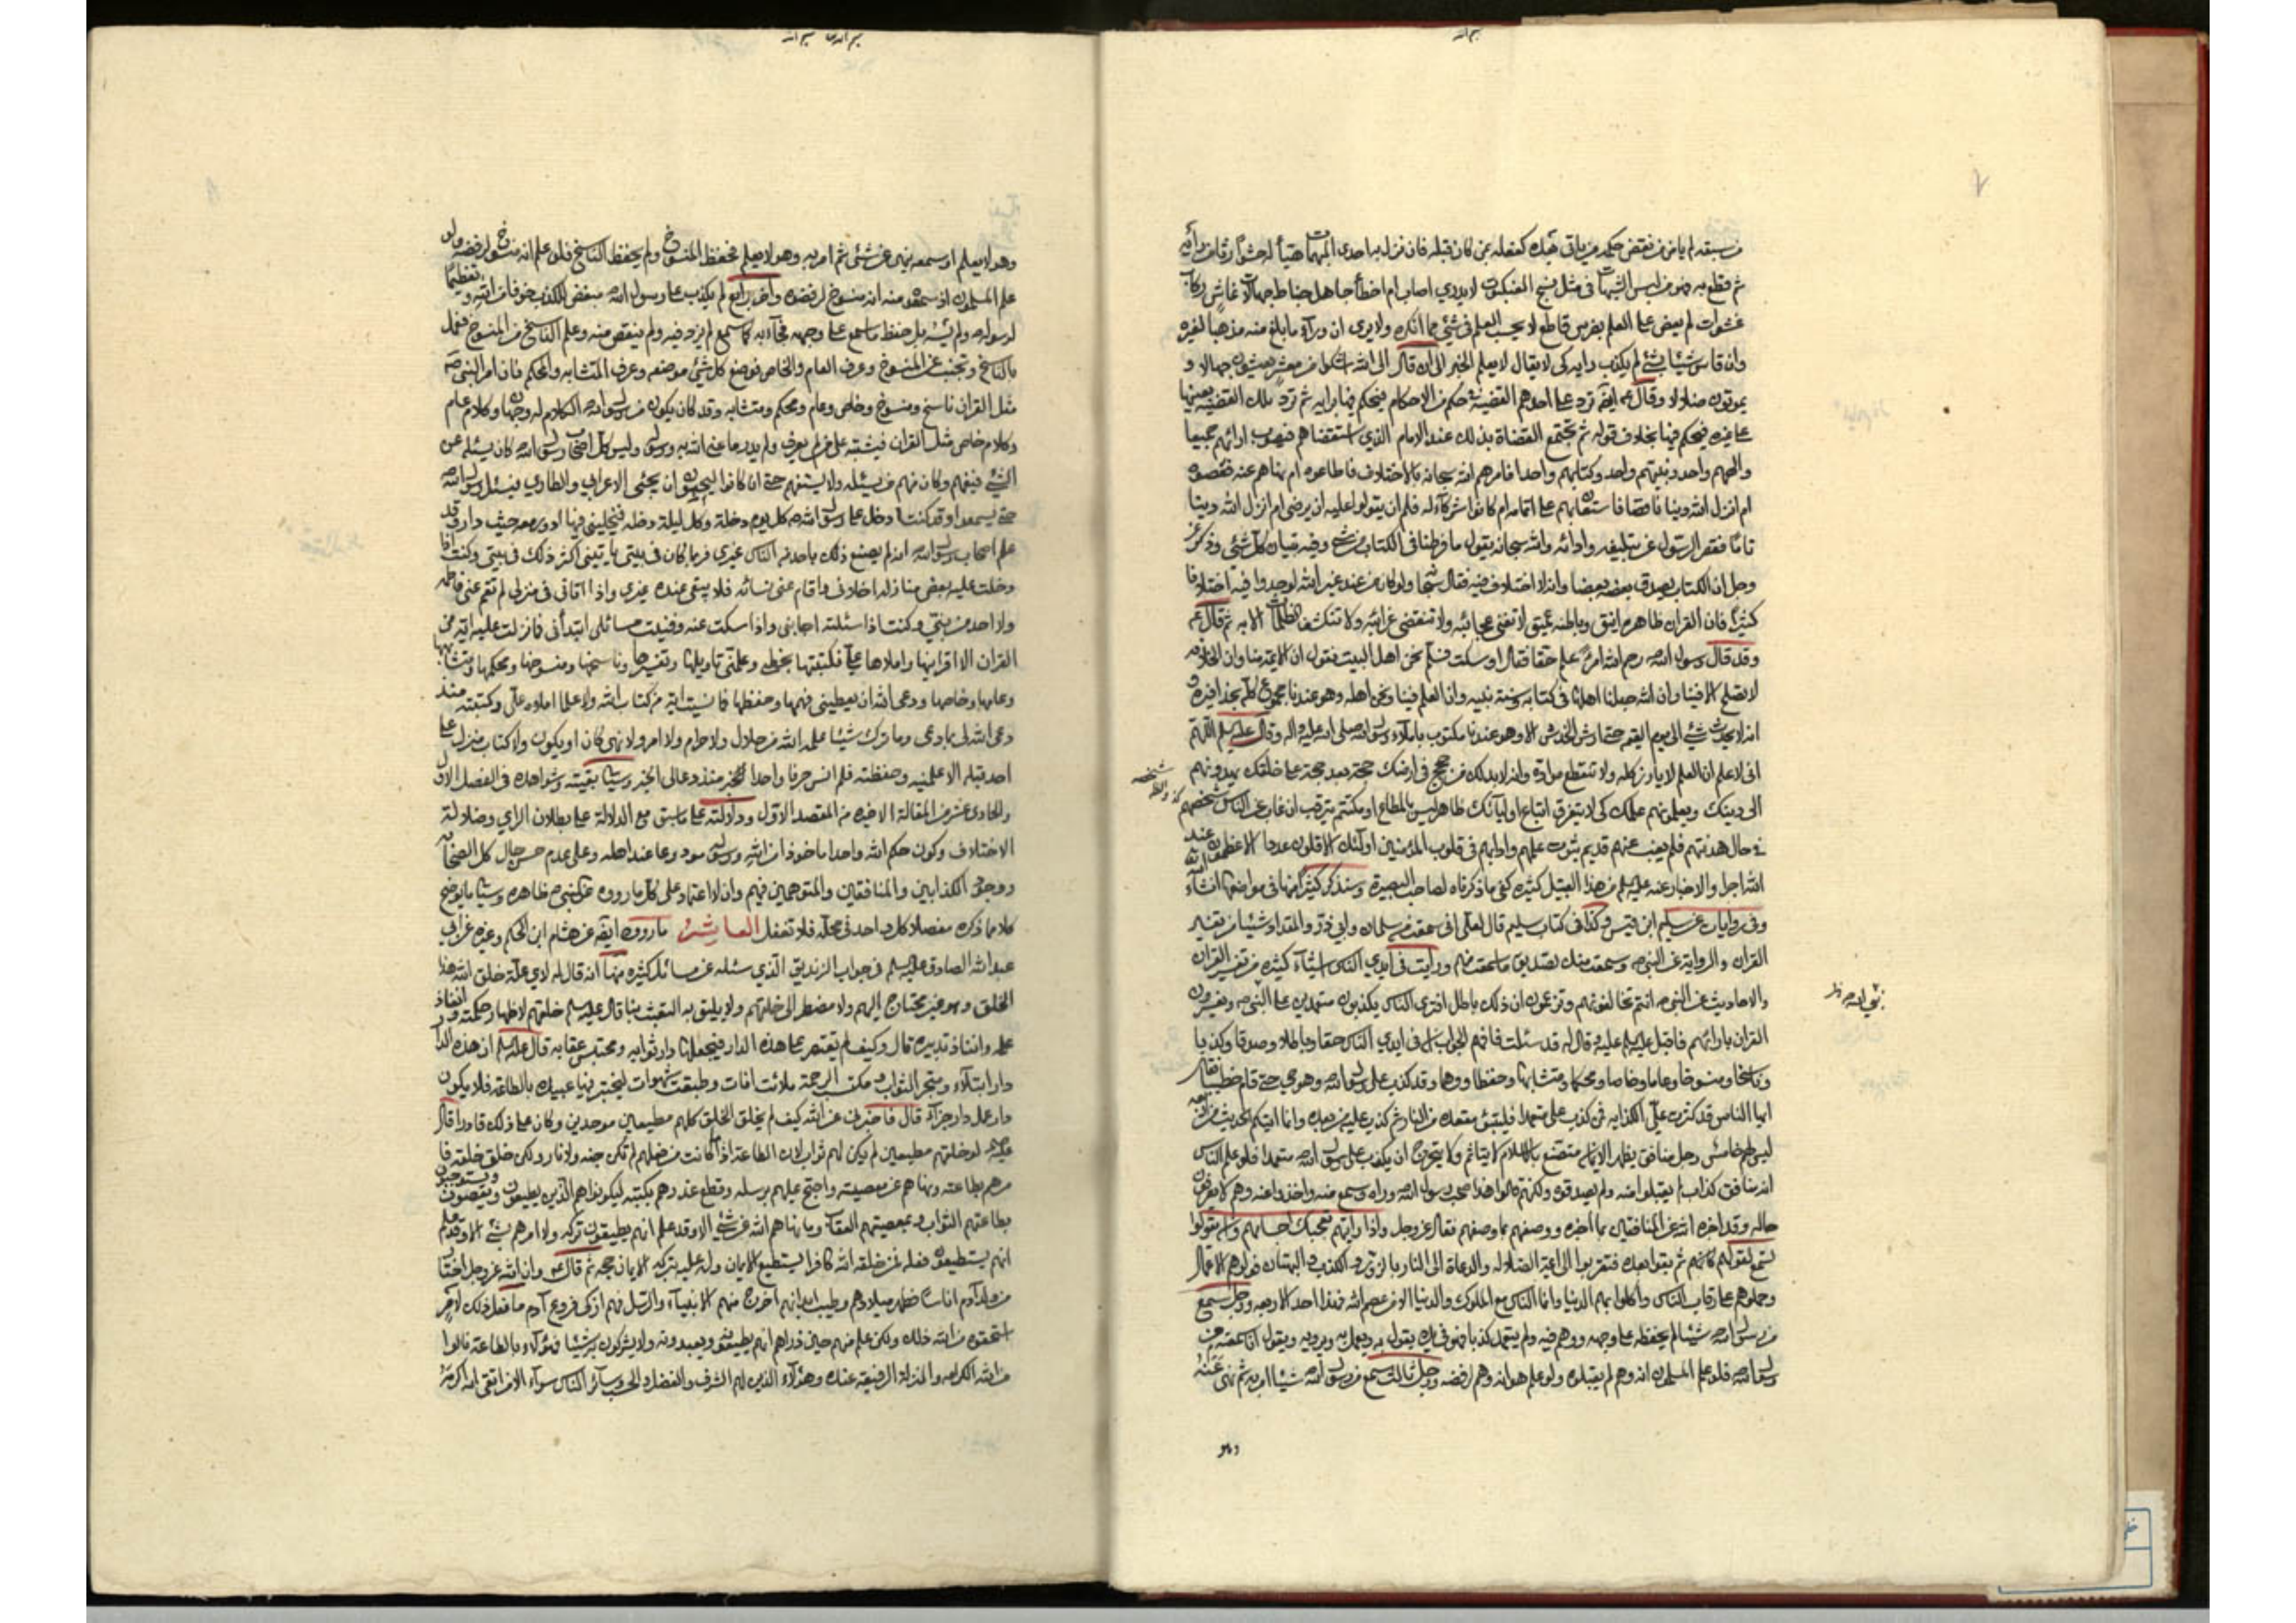 بسم الله
من سبقه لم يامن من نقض حكمه من ياتى بعده كفعله بمن كان قبله فان نزل به احدى المبهمات هيأ لها حشوا رثا من رأيه
ثم قطع به فهو من لبس الشبهات فى مثل نسج العنكبوت لا يدري اصاب ام اخطأ جاهل خباط جهالات عاش ركاب
عشوات لم يعض على العلم بضرس قاطع لا يحسب العلم فى شئ مما انكره ولا يرى ان وراء ما بلغ منه مذهبا لغيره
وان قاس شيئا بشئ لم يكذب رايه كى لا يقال لا يعلم الخبر الى ان قال الى الله اشكوا من معشر يعيشون جهالا و
يموتون ضلالا وقال ايضا ترد على احدهم القضية فى حكم من الاحكام فيحكم فيها برايه ثم ترد تلك القضية بعينها
على غيره فيحكم فيها بخلاف قوله ثم تجتمع القضاة بذلك عند الامام الذي استقضاهم فيصوب ارائهم جميعا
والههم واحد ونبيهم واحد وكتابهم واحد افامرهم الله سبحانه بالاختلاف فاطاعوه ام نهاهم عنه فعصوه
ام انزل الله دينا ناقصا فاستعان بهم على اتمامه ام كانوا شركاء له فلهم ان يقولوا وعليه ان يرضى ام انزل الله دينا
تاما فقصر الرسول عن تبليغه وادائه والله سبحانه يقول ما فرطنا فى الكتاب من شئ وفيه تبيان كل شئ وذكر عز
وجل ان الكتاب يصدق بعضه بعضا وانه لا اختلاف فيه فقال سبحانه ولو كان من عند غير الله لوجدوا فيه اختلافا
كثيرا فان القران ظاهره انيق وباطنه عميق لا تفنى عجائبه ولا تنقضى غرائبه ولا تنكشف الظلمات الا به ثم قال
وقد قال رسول الله رحم الله امرء علم حقا فقال او سكت فسلم نحن اهل البيت نقول ان الائمة منا وان الخلافة
لا تصلح الا فينا وان الله جعلنا اهلها فى كتابه وسنة نبيه وان العلم فينا ونحن اهله وهو عندنا مجموع كله بحذافيره و
انه لا يحدث شئ الى يوم القيمة حتى ارش الخدش الا وهو عندنا مكتوب باملاء رسول الله صلى الله عليه واله وقال عليه السلم اللهم
انى لاعلم ان العلم لا يارز كله ولا تنقطع مواده وانه لا بد لك من حجج فى ارضك حجة بعد حجة على خلقك يهدونهم
الى دينك ويعلمونهم علمك كى لا يتفرق اتباع اوليائك ظاهر ليس بالمطاع او مكتتم يترقب ان غاب عن الناس شخصهم
فى حال هدنتهم فلم يغب عنهم قديم مبثوث علمهم وادابهم فى قلوب المؤمنين اولئك الاقلون عددا الاعظمون عند
الله اجرا والاخبار عنه عليه السلم من هذا القبيل كثيرة كفى ما ذكرناه لصاحب البصيرة وسنذكر كثيرا منها فى مواضعها انشاء الله
وفى روايات عن سليم ابن قيس وكذا فى كتاب سليم قال لعلى انى سمعت من سلمان وابي ذر والمقداد شيئا من تفسير
القران والرواية عن النبى وسمعت منك تصديق ما سمعت منهم ورايت فى ايدي الناس اشياء كثيرة من تفسير القران
والاحاديث عن النبى انتم تخالفونهم وتزعمون ان ذلك باطل افترى الناس يكذبون متعمدين على النبى ويفسرون
القران بارائهم فاقبل عليه السلم عليه وقال له قد سئلت فافهم الجواب ان فى ايدي الناس حقا وباطلا وصدقا وكذبا
وناسخا ومنسوخا وعاما وخاصا ومحكما ومتشابها وحفظا ووهما وقد كذب على رسول الله وهو حى حتى قام خطيبا فقال
ايها الناس قد كثرت على الكذابه فمن كذب على متعمدا فليتبوء مقعده من النار ثم كذب عليه من بعده وانما اتيكم الحديث من اربعة
ليس لهم خامس رجل منافق يظهر الايمان متصنع بالاسلام لا يتاثم ولا يتحرج ان يكذب على رسول الله متعمدا فلو علم الناس
انه منافق كذاب لم يقبلوا منه ولم يصدقوه ولكنهم قالوا هذا صحب رسول الله وراه وسمع منه واخذوا عنه وهم لا يعرفون
حاله وقد اخبره الله عن المنافقين بما اخبره ووصفهم بما وصفهم فقال عز وجل واذا رايتهم تعجبك اجسامهم وان يقولوا
تسمع لقولهم كانهم ثم بقوا بعده فتقربوا الى ائمة الضلالة والدعاة الى النار بالزور والكذب والبهتان فولوهم الاعمال
وحملوهم على رقاب الناس واكلوا بهم الدنيا وانما الناس مع الملوك والدنيا الا من عصم الله فهذا احد الاربعه ورجل سمع
من رسول الله شيئا لم يحفظه على وجهه ووهم فيه ولم يتعمد كذبا فهو فى يده يقول به ويعمل به ويرويه ويقول انا سمعته من
رسول الله فلو علم المسلمون انه وهم لم يقبلوه ولو علم هو انه وهم لرفضه ورجل ثالث سمع من رسول الله شيئا امر به ثم نهى عنه
وهو
بسم الله بسم الله
وهو لا يعلم او سمعه ينهى عن شئ ثم امر به وهو لا يعلم فحفظ المنسوخ ولم يحفظ الناسخ فلو علم انه منسوخ لرفضه ولو
علم المسلمون اذ سمعوه منه انه منسوخ لرفضوه واخر رابع لم يكذب على رسول الله مبغض للكذب خوفا من الله وتعظيما
لرسوله ولم ينسه بل حفظ ما سمع على وجهه فجاء به كما سمع لم يزد فيه ولم ينقص منه وعلم الناسخ من المنسوخ فعمل
بالناسخ وتجنب عن المنسوخ وعرف العام والخاص فوضع كل شئ موضعه وعرف المتشابه والمحكم فان امر النبى
مثل القران ناسخ ومنسوخ وخاص وعام ومحكم ومتشابه وقد كان يكون من رسول الله الكلام له وجهان وكلام عام
وكلام خاص مثل القران فيشتبه على من لم يعرف ولم يدر ما عنى الله به ورسوله وليس كل اصحاب رسول الله كان يسئله عن
الشئ فيفهم وكان منهم من يسئله ولا يستفهم حتى ان كانوا ليحبون ان يجئ الاعرابي والطاري فيسئل رسول الله
حتى يسمعوا وقد كنت ادخل على رسول الله كل يوم دخلة وكل ليلة دخلة فيخلينى فيها ادور معه حيث دار وقد
علم اصحاب رسول الله انه لم يصنع ذلك باحد من الناس غيري فربما كان فى بيتى ياتينى اكثر ذلك فى بيتى وكنت اذا
دخلت عليه بعض منازله اخلانى واقام عنى نسائه فلا يبقى عنده غيري واذا اتانى فى منزلى لم تقم عنى فاطمه
ولا احد من بنى وكنت اذا سئلته اجابنى واذا سكت عنه وفنيت مسائلى ابتدأنى فما نزلت عليه اية من
القران الا اقرانيها واملاها على فكتبتها بخطى وعلمنى تاويلها وتفسيرها وناسخها ومنسوخها ومحكمها ومتشابهها
وعامها وخاصها ودعى الله ان يعطينى فهمها وحفظها فما نسيت اية من كتاب الله ولا علما املاه على وكتبته منذ
دعى الله لى بما دعى وما ترك شيئا علمه الله من حلال ولا حرام ولا امر ولا نهى كان او يكون ولا كتاب منزل على
احد قبله الا علمنيه وحفظته فلم انس حرفا واحدا الخبر منذ دعا لى الخبر وسيأتى بقيته وشواهده فى الفصل الاول
والحادى عشر من المقالة الاخيره من المقصد الاول ودلالته على ما سبق مع الدلالة على بطلان الراي وضلالة
الاختلاف وكون حكم الله واحدا ماخوذا من الله ورسوله مودوعا عند اهله وعلى عدم حسن حال كل الصحابه
ووجود الكذابين والمنافقين والمتوهمين فيهم وان لا اعتماد على كل ما رووه عن النبى ظاهره وسيأتى ما يوضح
كلا مما ذكره مفصلا كل واحد فى محله فلا تغفل العاشر ما رووه ايضا عن هشام ابن الحكم وغيره عن ابي
عبد الله الصادق عليه السلم فى جواب الزنديق الذي سئله عن مسائل كثيره منها انه قال له لاي علة خلق الله هذا
الخلق وهو غير محتاج اليهم ولا مضطر الى خلقهم ولا يليق به التعبث بنا قال عليه السلم خلقهم لاظهار حكمته وانفاذ
علمه وامضاء تدبيره قال وكيف لم يقتصر على هذه الدار فيجعلها دار ثوابه ومحتبس عقابه قال عليه السلم ان هذه الدار
دار ابتلاء ومتجر الثواب ومكتسب الرحمة ملئت افات وطبقت شهوات ليختبر فيها عبيده بالطاعة فلا يكون
دار عمل دار جزاء قال فاخبرنى عن الله كيف لم يخلق الخلق كلهم مطيعين موحدين وكان على ذلك قادرا قال
لو خلقهم مطيعين لم يكن لهم ثواب لان الطاعة اذا ما كانت من فعلهم لم تكن جنه ولا نار ولكن خلق خلقه فا
مرهم بطاعته ونهاهم عن معصيته واحتج عليهم برسله وقطع عذرهم بكتبه ليكونوا هم الذين يطيعون ويعصون ويستوجبون
بطاعتهم الثواب وبمعصيتهم العقاب وما نهاهم الله عن شئ الا وقد علم انهم يطيقون تركه ولا امرهم بشئ الا وقد علم
انهم يستطيعون فعله خلقه الله كافرا يستطيع الايمان وله عليه بتركه الايمان حجه ثم قال وان الله عز وجل اختار
من ولد ادم اناسا طهر ميلادهم وطيب ابدانهم اخرج منهم الانبياء والرسل فهم ازكى فروع آدم ما فعل ذلك لامر
استحقوه من الله ذلك ولكن علم منهم حين ذراهم انهم يطيعونه ويعبدونه ولا يشركون به شيئا فهؤلاء بالطاعة نالوا
من الله الكرامه والمنزلة الرفيعة عنده وهؤلاء الذين لهم الشرف والفضل والحسب وسائر الناس سواء الا من اتقى الله اكرمه